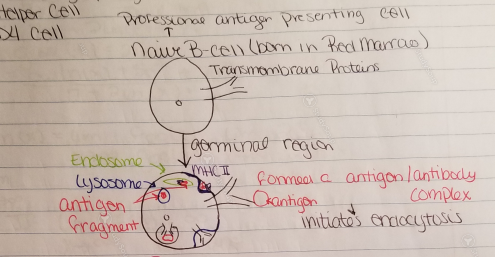 Helper Cell
Professional antigen presenting cell
D4 Cell
Naive B-cell (born in Red Marrao)
Transmembrane Proteins
germinal region
Endosome
MHC II
Lysosome
formed c antigen/antibody
complex
antigen
antigen
fragment
initiates endocytosis